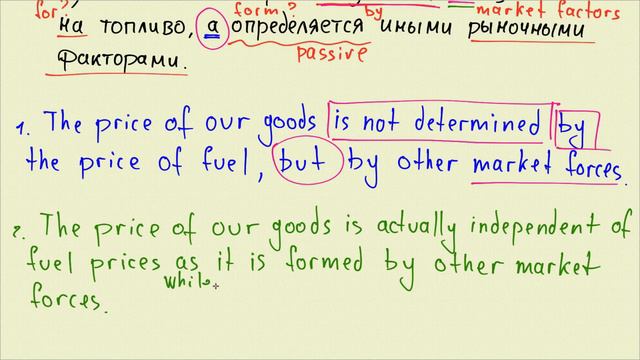 for? form? by market factors
на топливо, а определяется иными рыночными
passive
факторами.
1. The price of our goods is not determined by
the price of fuel, but by other market forces.
2. The price of our goods is actually independent of
fuel prices as it is formed by other market
while
forces.